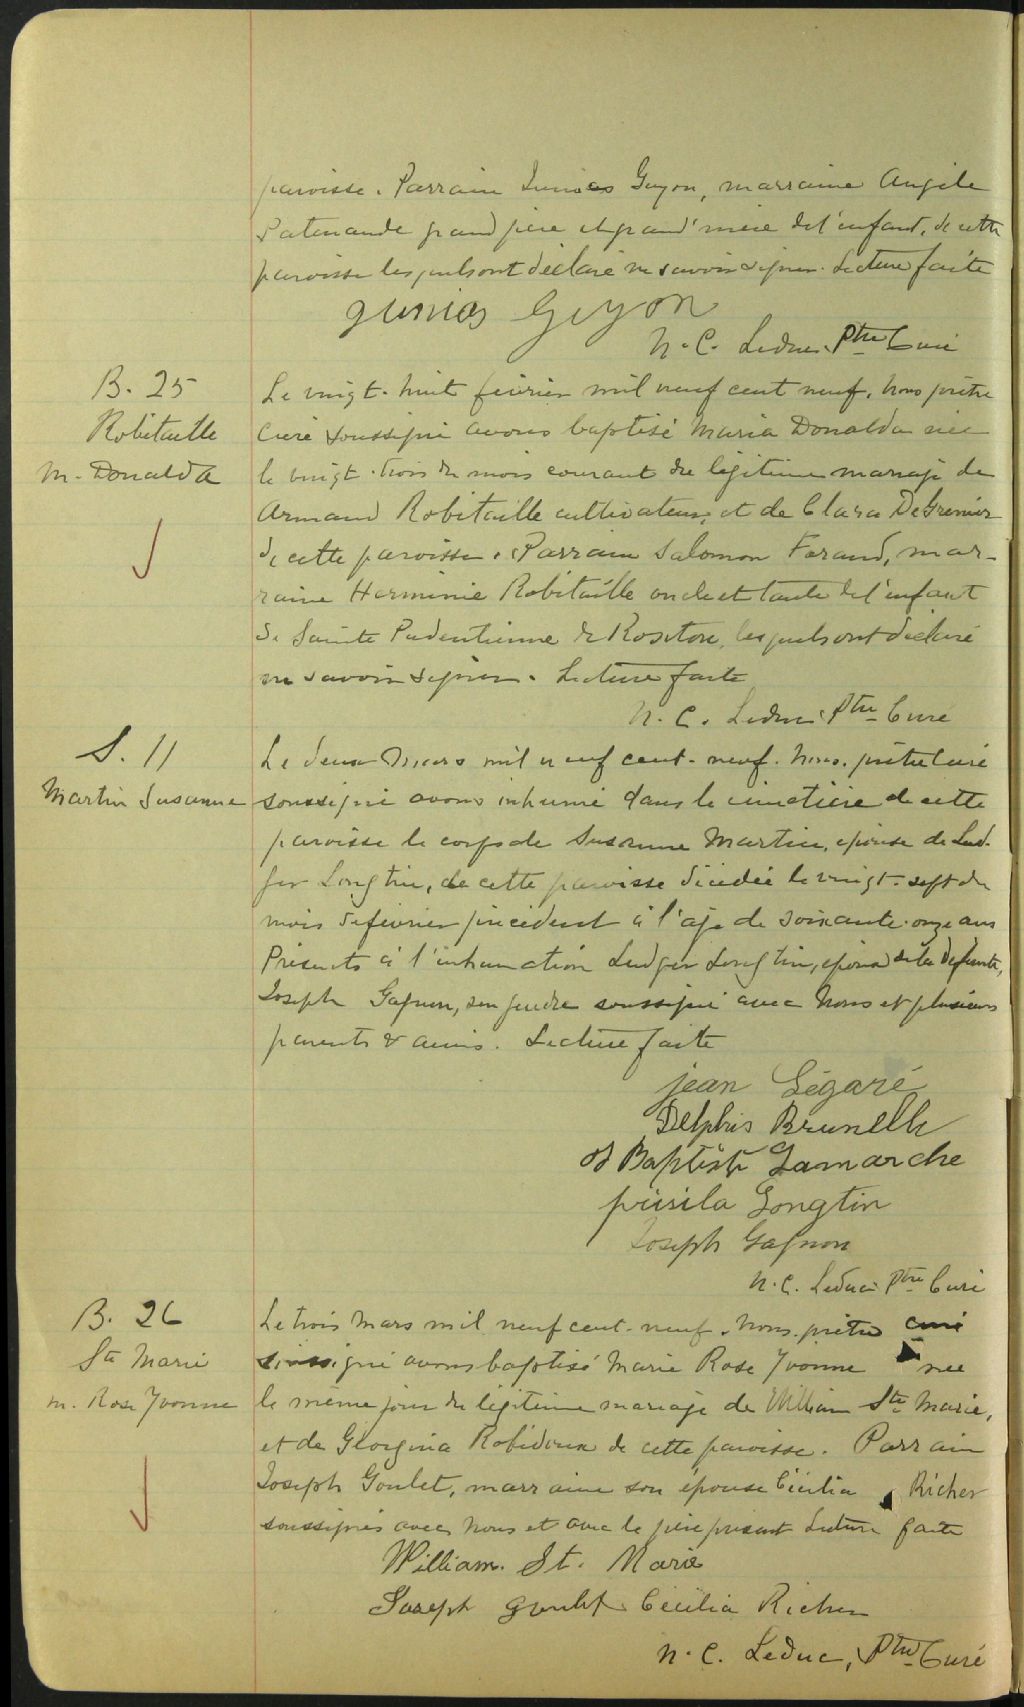 paroisse. Parrain Junias Guyon, marraine Angèle
Patenaude grand père et grand'mère de l'enfant, de cette
paroisse lesquels ont déclaré ne savoir signer. Lecture faite
junias Guyon
N. C. Leduc, Ptre Curé
B. 25
Robitaille
M. Donalda
Le vingt-huit février mil neuf cent neuf, Nous prêtre
Curé soussigné avons baptisé Maria Donalda née
le vingt-trois du mois courant du légitime mariage de
Armand Robitaille cultivateur, et de Clara DeGrenier
de cette paroisse. Parrain Salomon Faraud, mar-
raine Herminie Robitaille oncle et tante de l'enfant
de Sainte Pudentienne & Roxton, lesquels ont déclaré
ne savoir signer. Lecture faite
N. C. Leduc Ptre Curé
S. 11
Martin Susanne
Le deux Mars mil neuf cent-neuf. Nous prêtre curé
soussigné avons inhumé dans le cimetière de cette
paroisse le corps de Susanne Martin, épouse de Lud-
ger Longtin, de cette paroisse décédée le vingt-sept du
mois de février précédent à l'âge de soixante-onze ans
Présents à l'inhumation Ludger Longtin, époux de la défunte,
Joseph Gagnon, son gendre soussigné avec Nous et plusieurs
parents & amis. Lecture faite
jean Légaré
Delphis Brunelle
J Baptiste Lamarche
prisila Longtin
Joseph Gagnon
N. C. Leduc Ptre Curé
B. 26
Ste Marie
M. Rose Yvonne
Le trois Mars mil neuf cent-neuf. Nous prêtre curé
soussigné avons baptisé Marie Rose Yvonne née
le même jour du légitime mariage de William Ste Marie,
et de Georgina Robidoux de cette paroisse. Parrain
Joseph Goulet, marraine son épouse Cécilia Richer
soussignés avec Nous et avec le père présent Lecture faite
William. St. Marie
Joseph goulet Cécilia Richer
N. C. Leduc, Ptre Curé